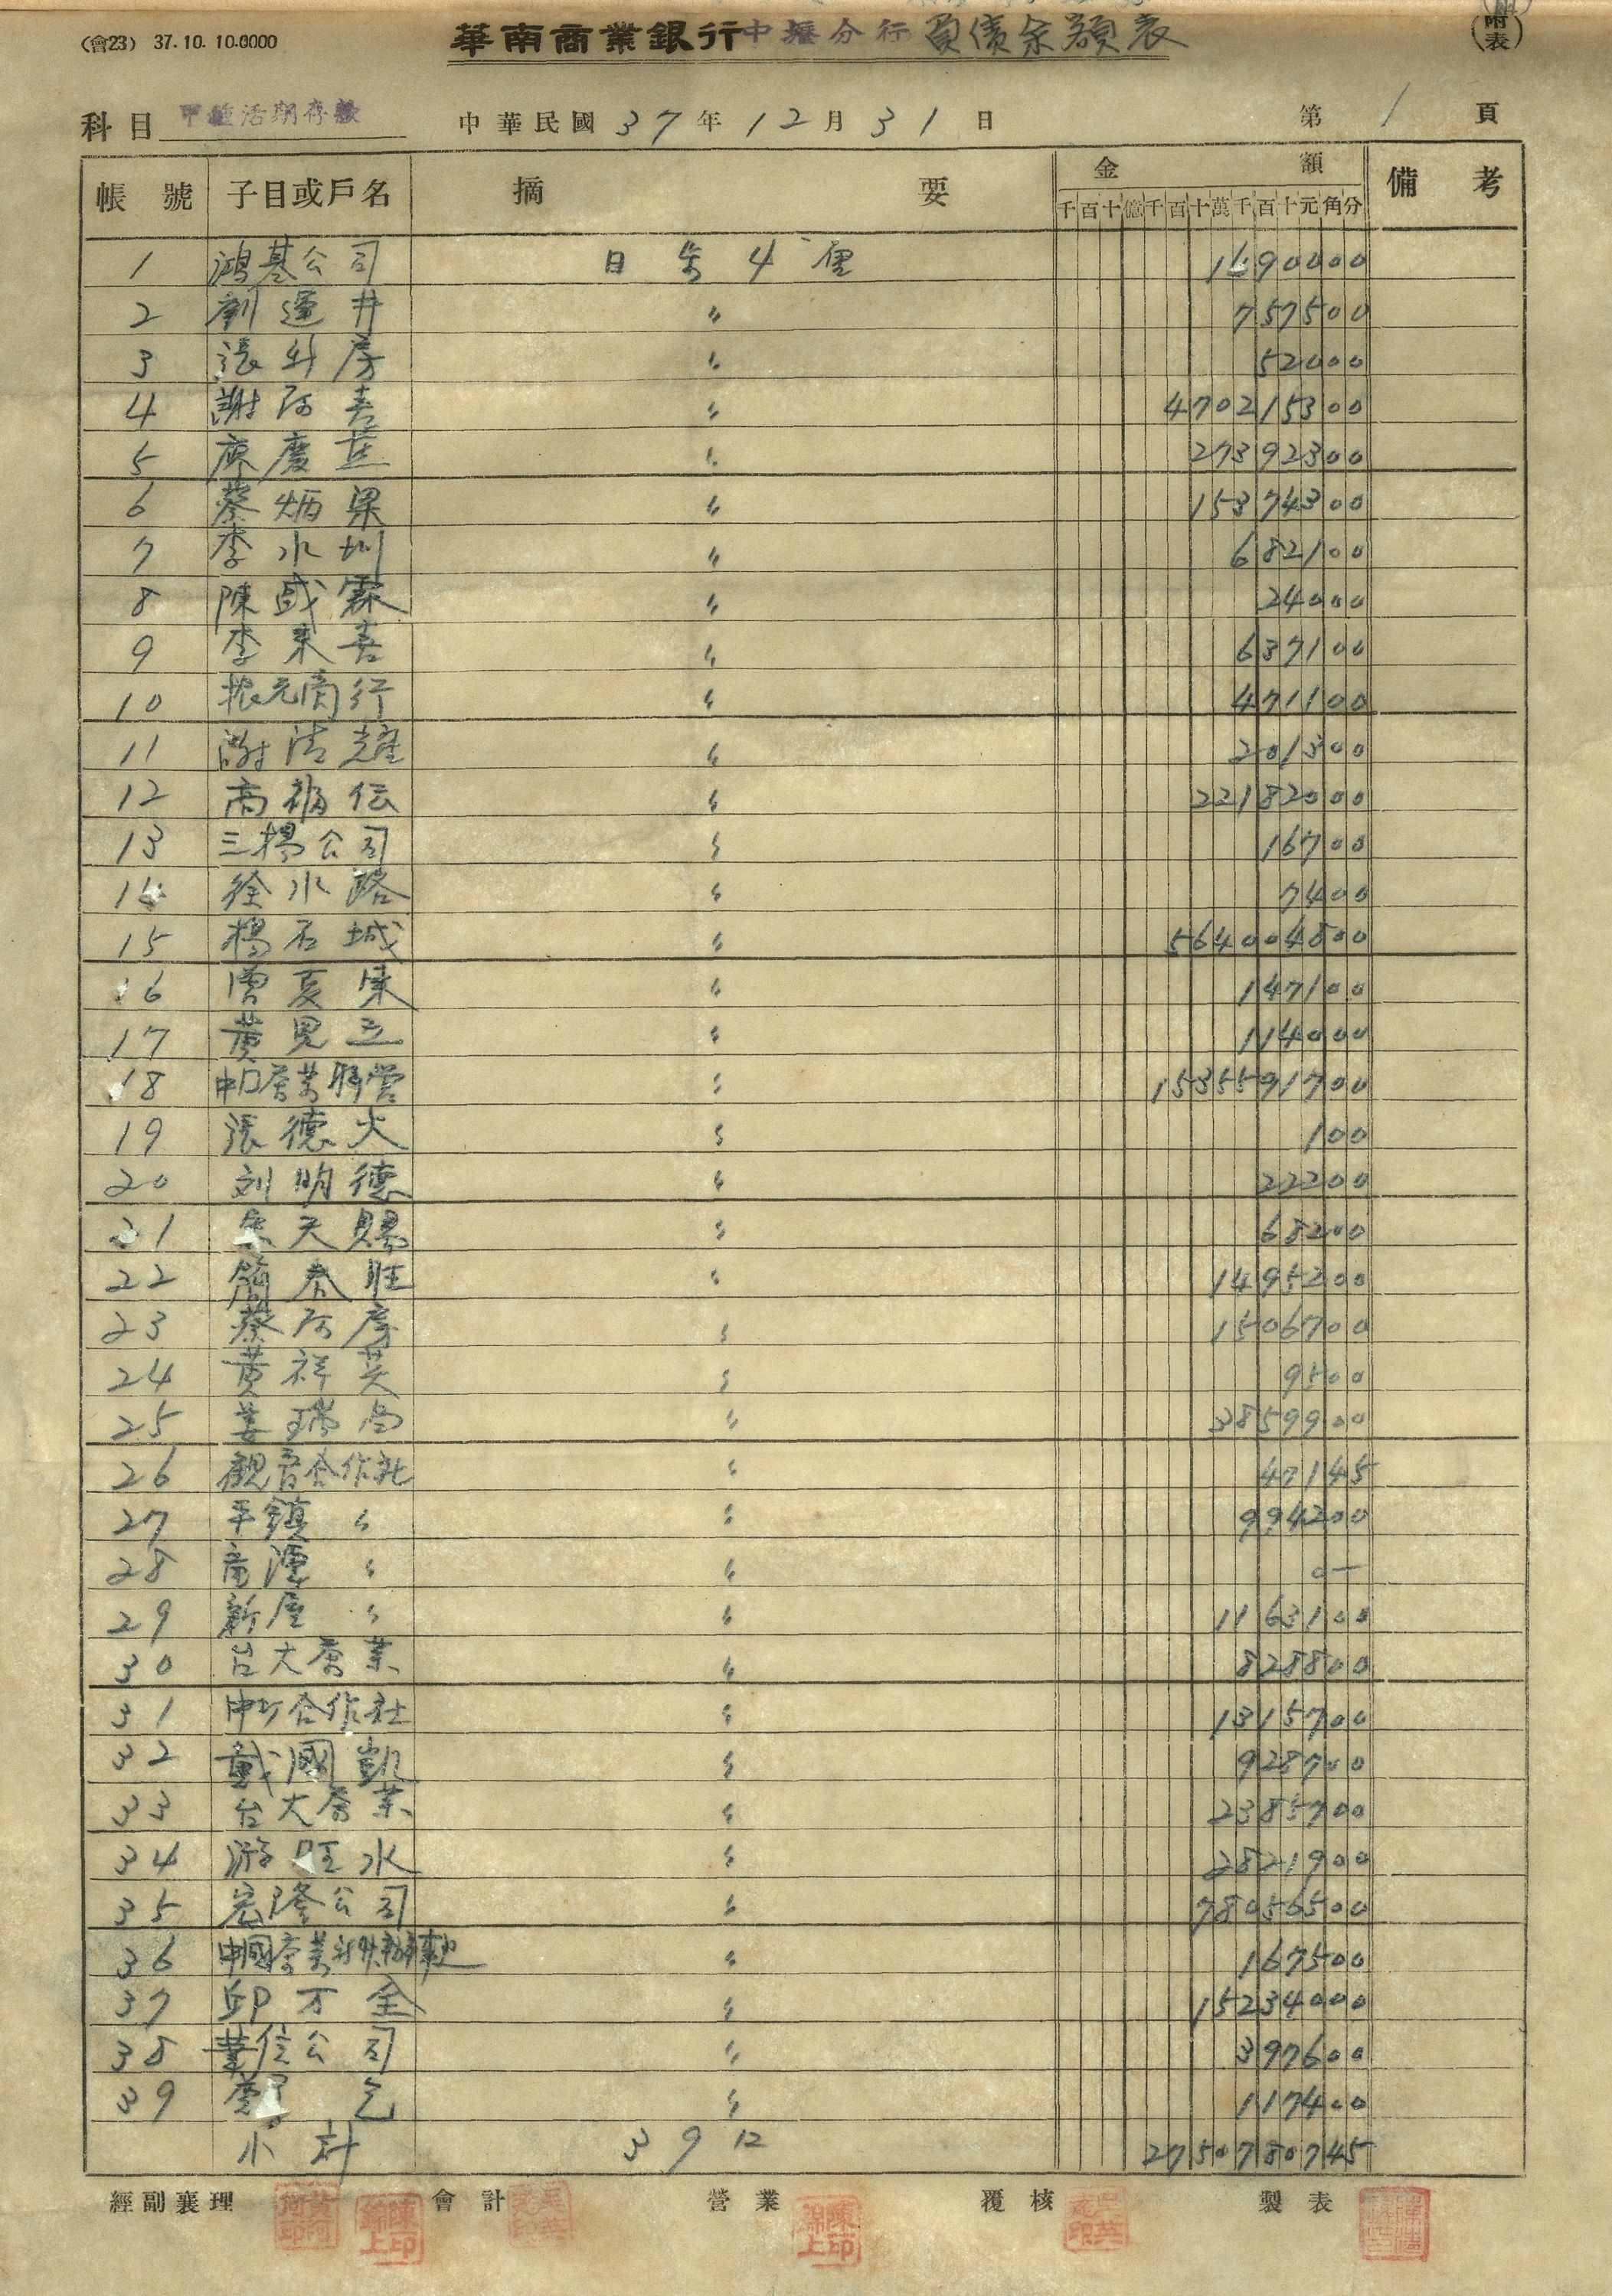 (會23) 37.10.10.0000
華南商業銀行中壢分行負債余額表
(附表)
科目 甲種活期存款 中華民國37年12月31日 第1頁
帳號 子目或戶名 摘要 金額 備考
千百十億千百十萬千百十元角分
1 鴻基公司 日步4厘 1690000
2 劉運井 〃 757500
3 張新房 〃 52000
4 謝阿喜 〃 470215300
5 廖慶 〃 27392300
6 蔡炳梁 〃 15374300
7 李水圳 〃 682100
8 陳盛霖 〃 24000
9 李來喜 〃 637100
10 振元商行 〃 471100
11 謝清耀 〃 201300
12 高福伝 〃 22182000
13 三揚公司 〃 16700
14 徐水路 〃 7400
15 楊石城 〃 564004800
16 曾夏 〃 147100
17 黃兒立 〃 114000
18 〃 1535591700
19 張德火 〃 100
20 刘明德 〃 22200
21 朱天賜 〃 68200
22 簡春旺 〃 1495200
23 蔡阿房 〃 1506700
24 黃祥英 〃 9500
25 姜瑞 〃 3859900
26 觀音合作社 〃 47145
27 平鎮 〃 〃 994200
28 龍潭 〃 〃 0—
29 新屋 〃 〃 1163100
30 台大 業 〃 828800
31 中坜合作社 〃 1315700
32 戴國凱 〃 928700
33 台大 業 〃 2385700
34 游旺水 〃 2821900
35 宏隆公司 〃 78056500
36 中國 〃 167500
37 邱万全 〃 15234000
38 業信公司 〃 397600
39 〃 117400
小計 39口 2750780745
經副襄理 會計 營業 覆核 製表